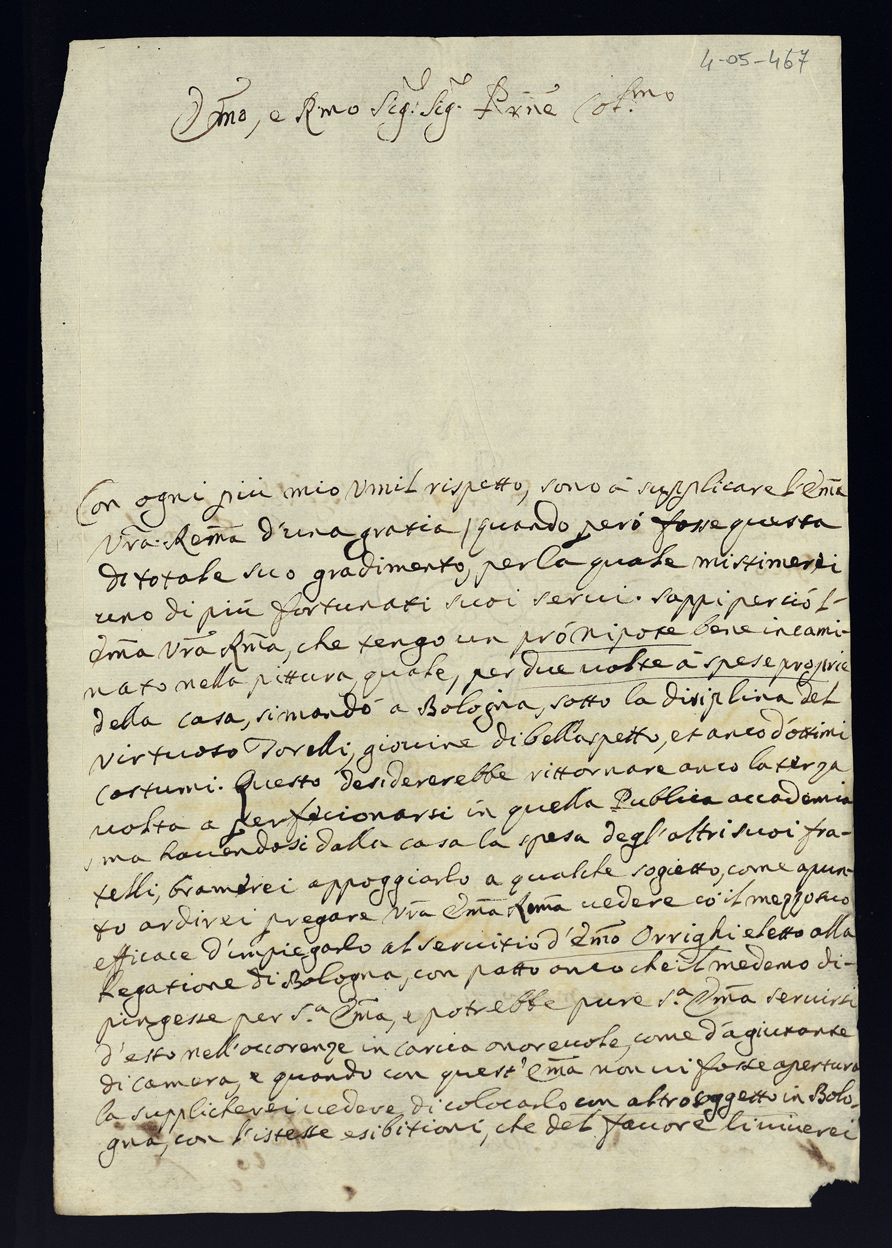 4-05-467
Em̃o, e Rmo Sig.r Sig.r Prñe Col.mo
Con ogni più mio Vmil rispetto, sono à supplicare l'Em̃a
Vrã Rem̃a d'una gratia / quando però fosse questa
di totale suo gradimento, per la quale mi stimerei
uno di più fortunati suoi serui. Sappi perciò l'
Em̃a Vrã Rm̃a, che tengo un prónipote bene incami-
nato nella pittura, quale, per due uolte à spese proprie
della casa, si mandò a Bologna, sotto la disiplina del
Virtuoso Torelli, giouine di bell'aspetto, et anco d'ottimi
costumi. Questo desidererebbe rittornare anco la terza
uolta a perfecionarsi in quella Publica accademia
ma hauendosi dalla casa la spesa degl'altri suoi fra-
telli, bramerei appoggiarlo a qualche sogietto, come apun-
to ardirei pregare Vrã Em̃a Rem̃a uedere có il mezzo suo
efficace d'impiegarlo al seruitio d'Em̃o Orrighi eletto alla
Legatione di Bologna, con patto anco che il medemo di-
pingesse per S.a Em̃a, e potrebbe pure S.a Em̃a seruirsi
d'esso nell'occorenze in carica onoreuole, come d'agiutante
di camera, e quando con quest'Em̃a non ui fosse apertura
la supplicherei uedere di colocarlo con altro soggetto in Bolo-
gna, con l'istesse esibitioni, che del fauore li uiuerei